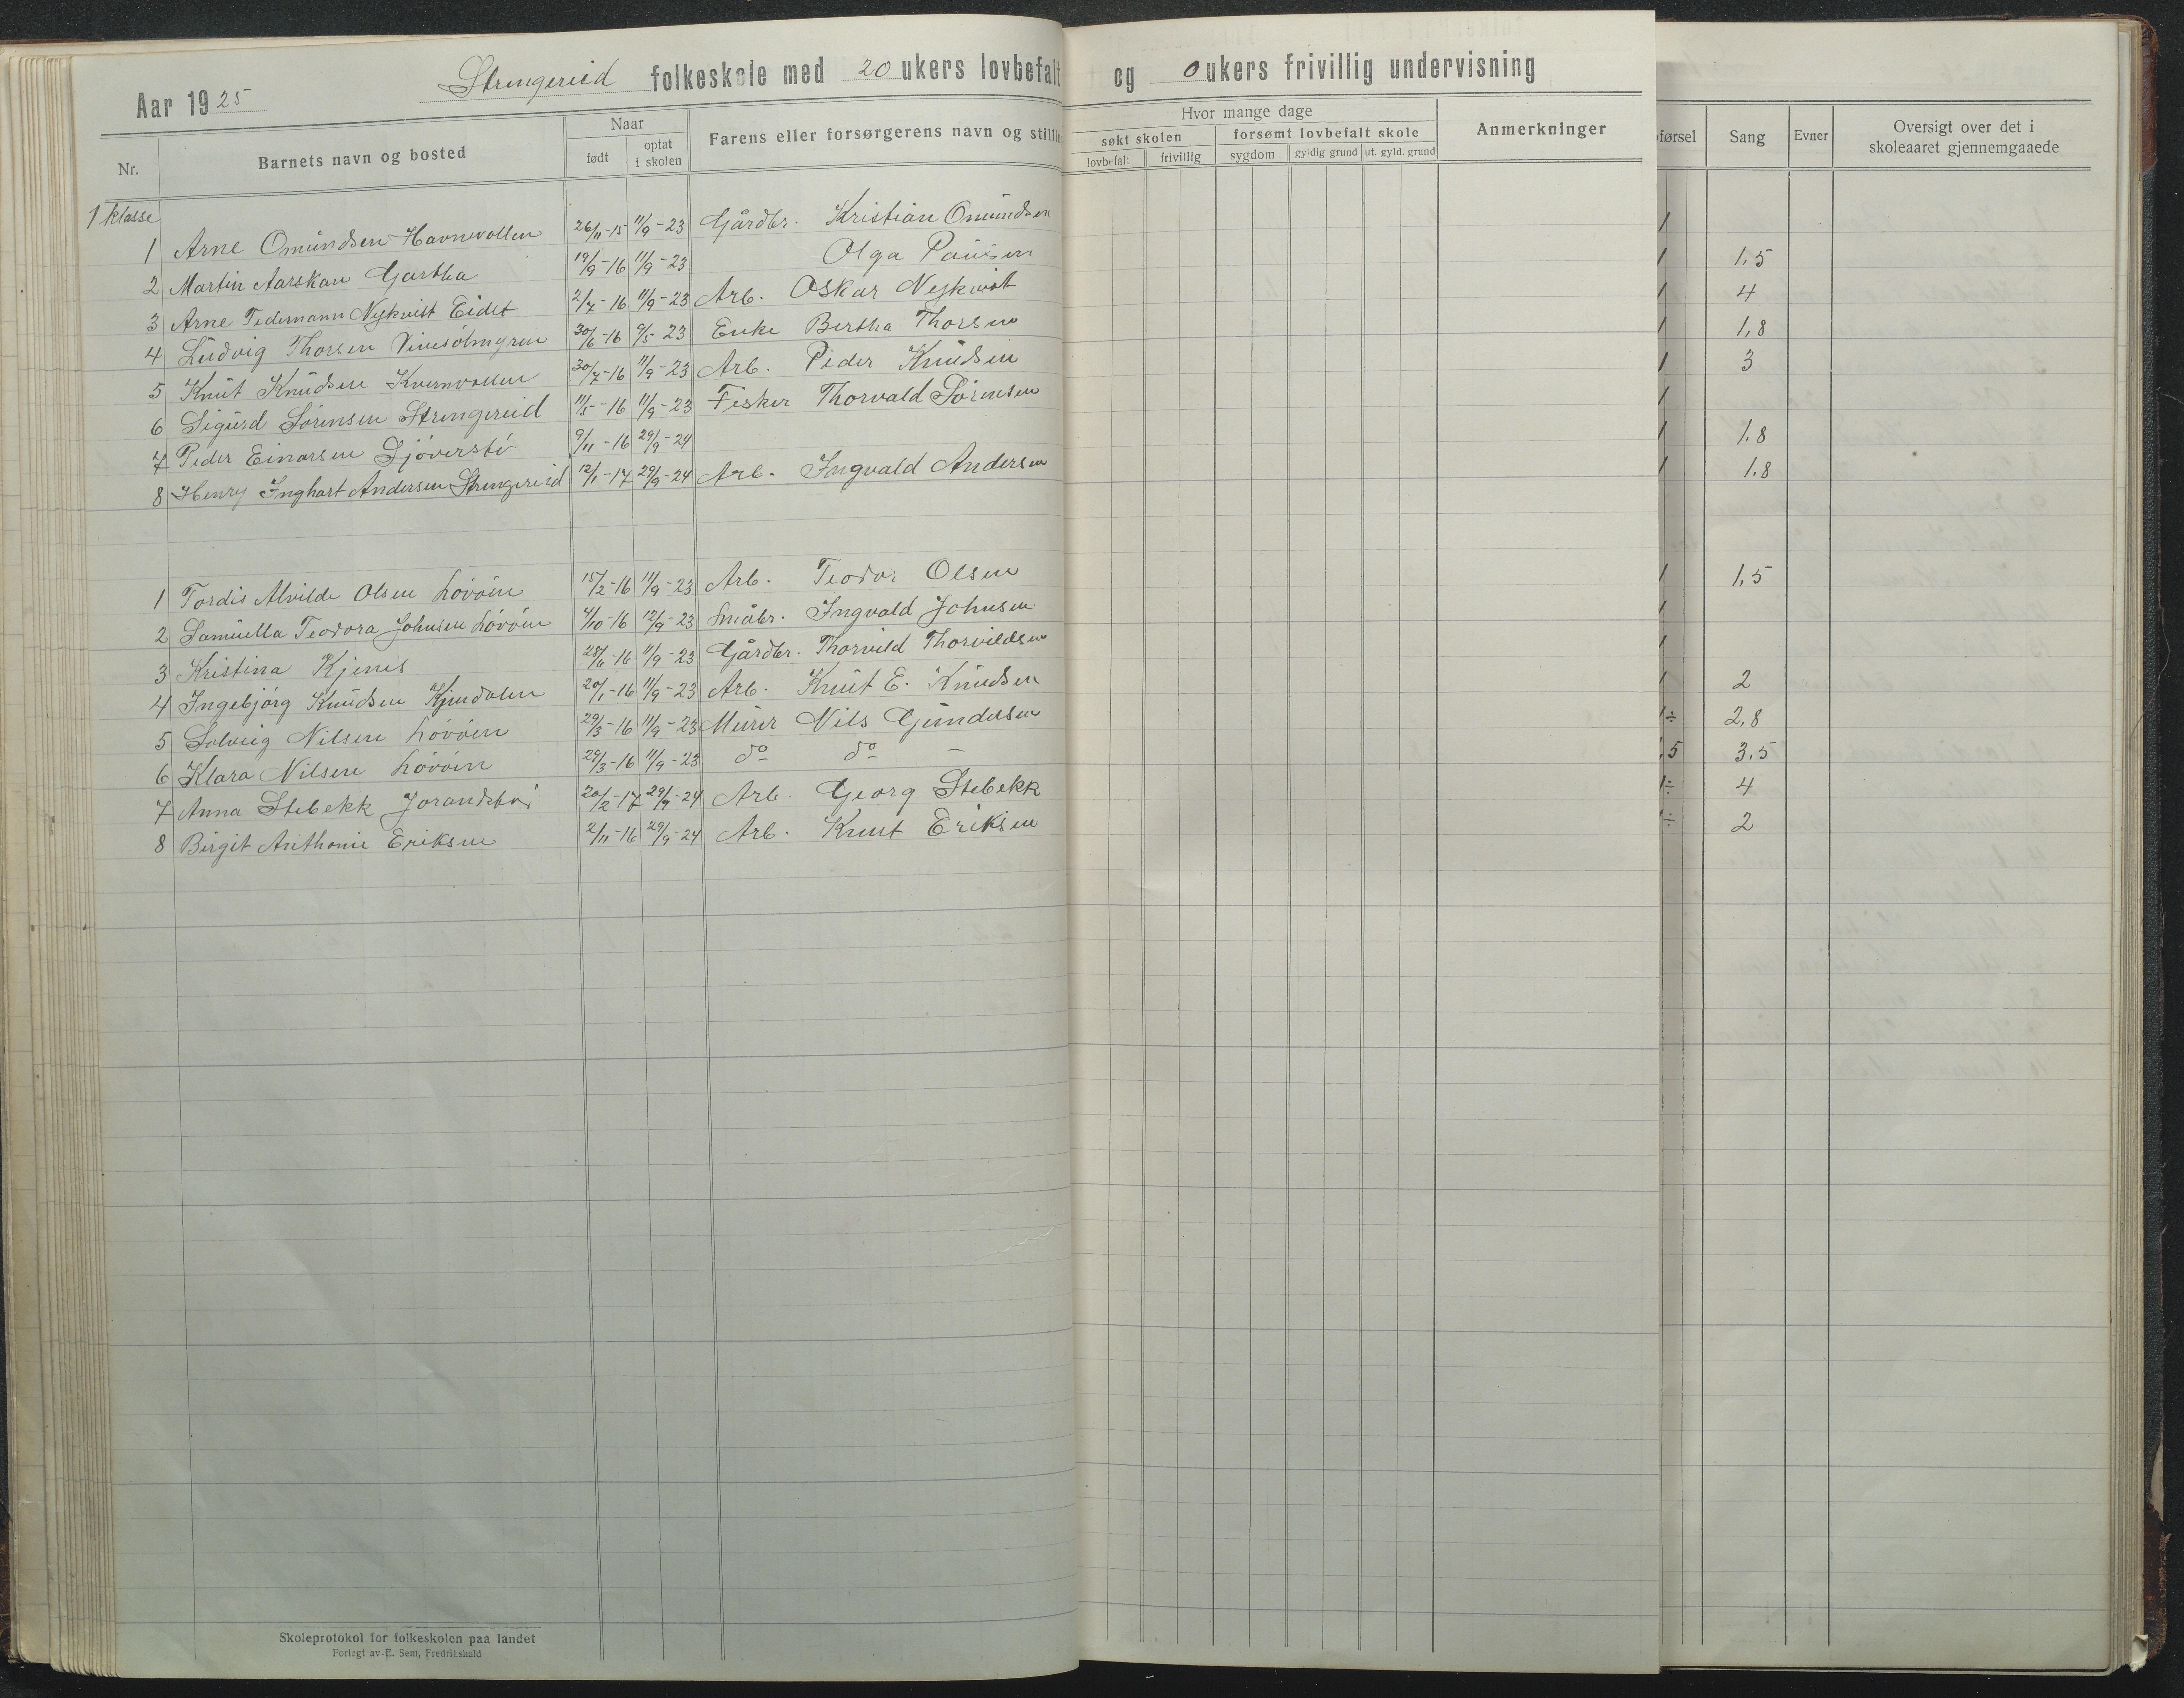 Aar 1925 Strengereid folkeskole med 20 ukers lovbefalt og 0 ukers frivillig undervisning
Nr. Barnets navn og bosted Naar født optat i skolen Farens eller forsørgerens navn og stillin
Hvor mange dage søkt skolen lovbefalt frivillig forsømt lovbefalt skole sygdom gyldig grund ut. gyld. grund Anmerkninger
førsel Sang Evner Oversigt over det i skoleaaret gjennemgaaede
1 klasse
1 Arne Omundsen Havnevollen 26/11-15 11/9-23 Gårdbr. Kristian Omundsen
2 Martin Aarskau Gartha 19/9-16 11/9-23 Olga Paulsen 1,5
3 Arne Tedemann Nykvist Eidet 2/7-16 11/9-23 Arb. Oskar Nykvist 4
4 Ludvig Thorsen 30/6-16 9/5-23 Enke Bertha Thorsen 1,8
5 Knut Knudsen Kvernvollen 30/7-16 11/9-23 Arb. Peder Knudsen 3
6 Sigurd Sörensen Strengereid 11/5-16 11/9-23 Fisker Thorvald Sörensen
7 Peder Einarsen Sjöverstö 9/11-16 29/9-24 1,8
8 Henry Inghart Andersen Strengereid 12/1-17 29/9-24 Arb. Ingvald Andersen 1,8
1 Tordis Alvilde Olsen Lövöen 15/2-16 11/9-23 Arb. Teodor Olsen 1,5
2 Samuella Teodora Johnsen Lövöen 4/10-16 12/9-23 Småbr. Ingvald Johnsen
3 Kristina Kjenes 28/6-16 11/9-23 Gårdbr. Thorvild Thorvildsen
4 Ingebjörg Knudsen Kjendalen 20/1-16 11/9-23 Arb. Knut E. Knudsen 2
5 Solveig Nilsen Lövöen 29/3-16 11/9-23 Murer Nils Gundersen 2,8
6 Klara Nilsen Lövöen 29/3-16 11/9-23 do do 3,5
7 Anna Stebekk 20/2-17 29/9-24 Arb. Georg Stebekk 4
8 Birgit Anthonie Eriksen 2/11-16 29/9-24 Arb. Knut Eriksen 2
Skoleprotokol for folkeskolen paa landet
Forlagt av E. Sem, Fredrikshald